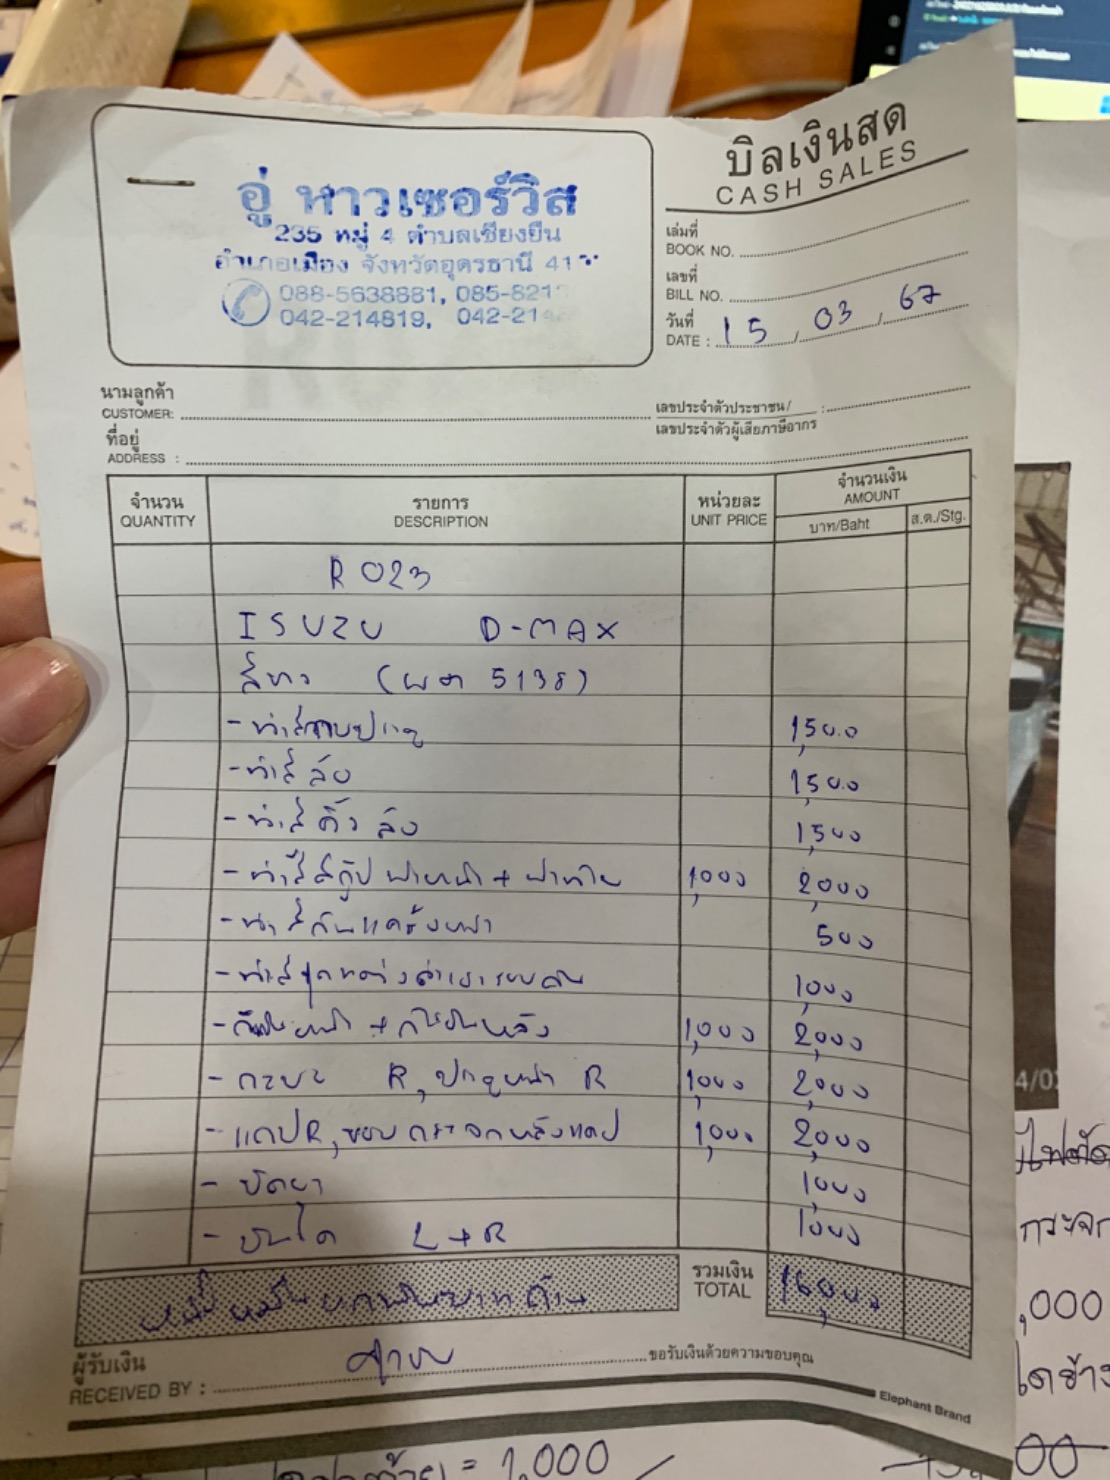 บิลเงินสด
CASH SALES
อู่ หาวเซอร์วิส
235 หมู่ 4 ตำบลเชียงยืน
อำเภอเมือง จังหวัดอุดรธานี 41
088-5638881, 085-821
042-214819, 042-21
เล่มที่
BOOK NO.
เลขที่
BILL NO.
วันที่
DATE : 15 / 03 / 67
นามลูกค้า
CUSTOMER:
เลขประจำตัวประชาชน/ :
เลขประจำตัวผู้เสียภาษีอากร
ที่อยู่
ADDRESS :
จำนวน รายการ หน่วยละ จำนวนเงิน
QUANTITY DESCRIPTION UNIT PRICE AMOUNT
บาท/Baht ส.ต./Stg.
R 023
ISUZU D-MAX
สีขาว (ผต 5138)
- ทำสี 1,500
- ทำสี ล้อ 1,500
- ทำสี คิ้ว ล้อ 1,500
- ทำสี สกู๊ป ฝาหน้า + ฝาท้าย 1,000 2,000
- ทำสี กันแคร้งหน้า 500
- ทำสีชุดแต่ง รอบคัน 1,000
- กันชนหน้า + กันชนหลัง 1,000 2,000
- กระบะ R, ประตูหน้า R 1,000 2,000
- แคป R, ขอบกระจกหลังแคป 1,000 2,000
- ขัดยา 1,000
- บันได L+R 1,000
หนึ่งหมื่นหกพันบาทถ้วน
รวมเงิน
TOTAL 16,000
ผู้รับเงิน
RECEIVED BY : ขอรับเงินด้วยความขอบคุณ
Elephant Brand
4/0
ไฟตัด
กระจก
,000
00
= 1,000